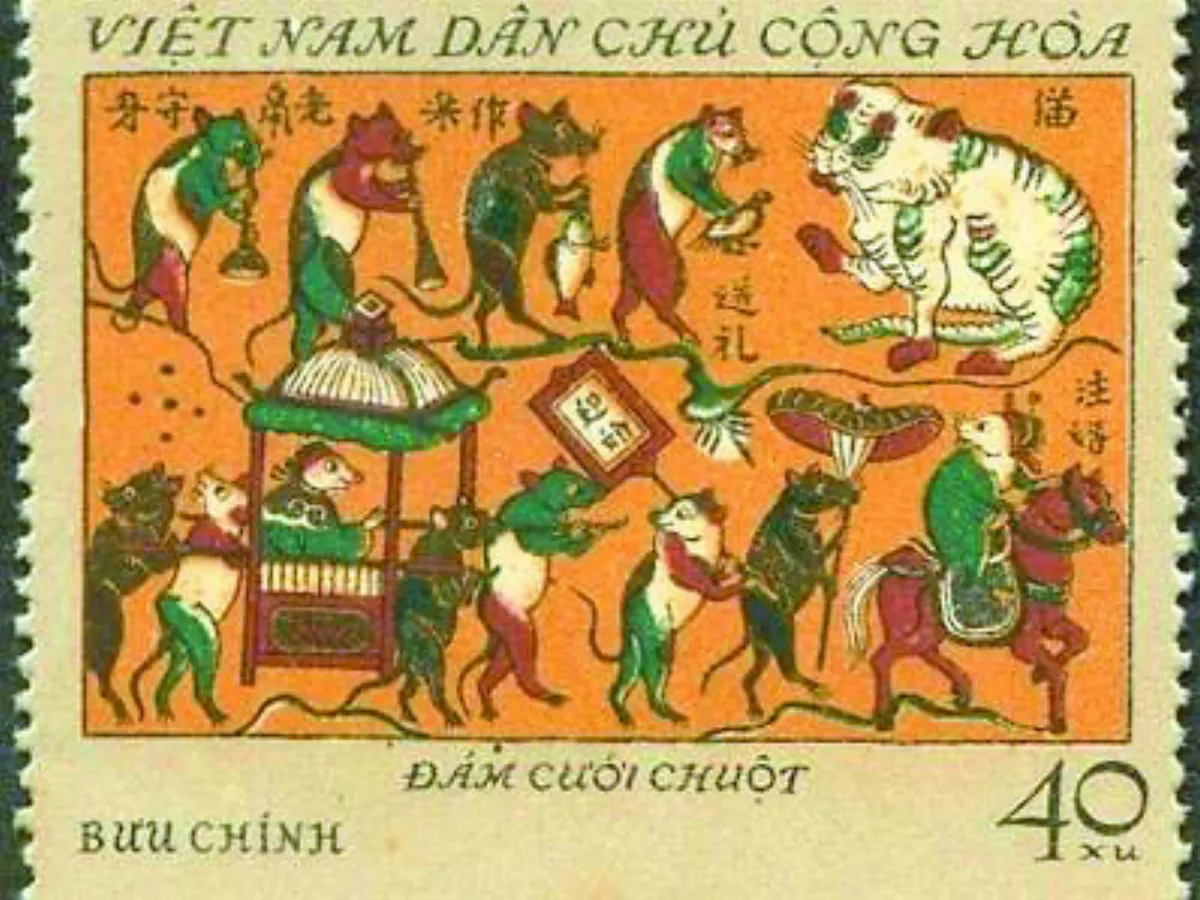 VIỆT NAM DÂN CHỦ CỘNG HÒA
身守 老 作
猫
送
礼
ĐÁM CƯỚI CHUỘT
BƯU CHÍNH
40
XU